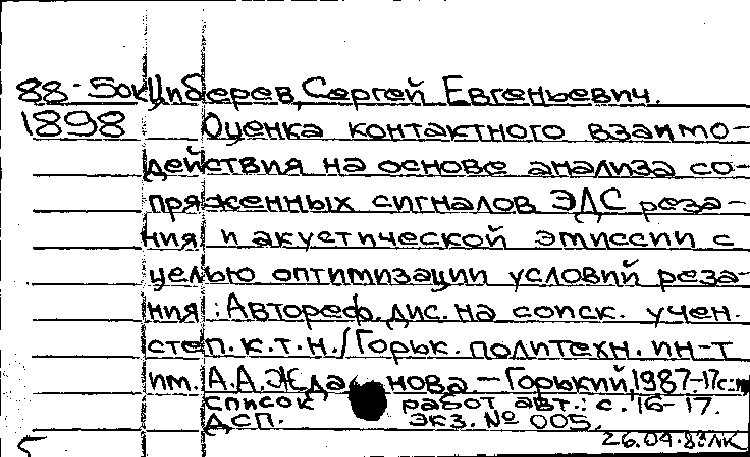 88-5ок Циберев, Сергей Евгеньевич.
1898 Оценка контактного взаимо-
действия на основе анализа со-
пряженных сигналов ЭДС реза-
ния и акустической эмиссии с
целью оптимизации условий реза-
ния: Автореф. дис. на соиск. учен.
степ. к.т.н./Горьк. политехн. ин-т
им. А.А. Жданова. - Горький, 1987.-17с.:
список работ авт.: с. 16-17.
ДСП. Экз. № 005.